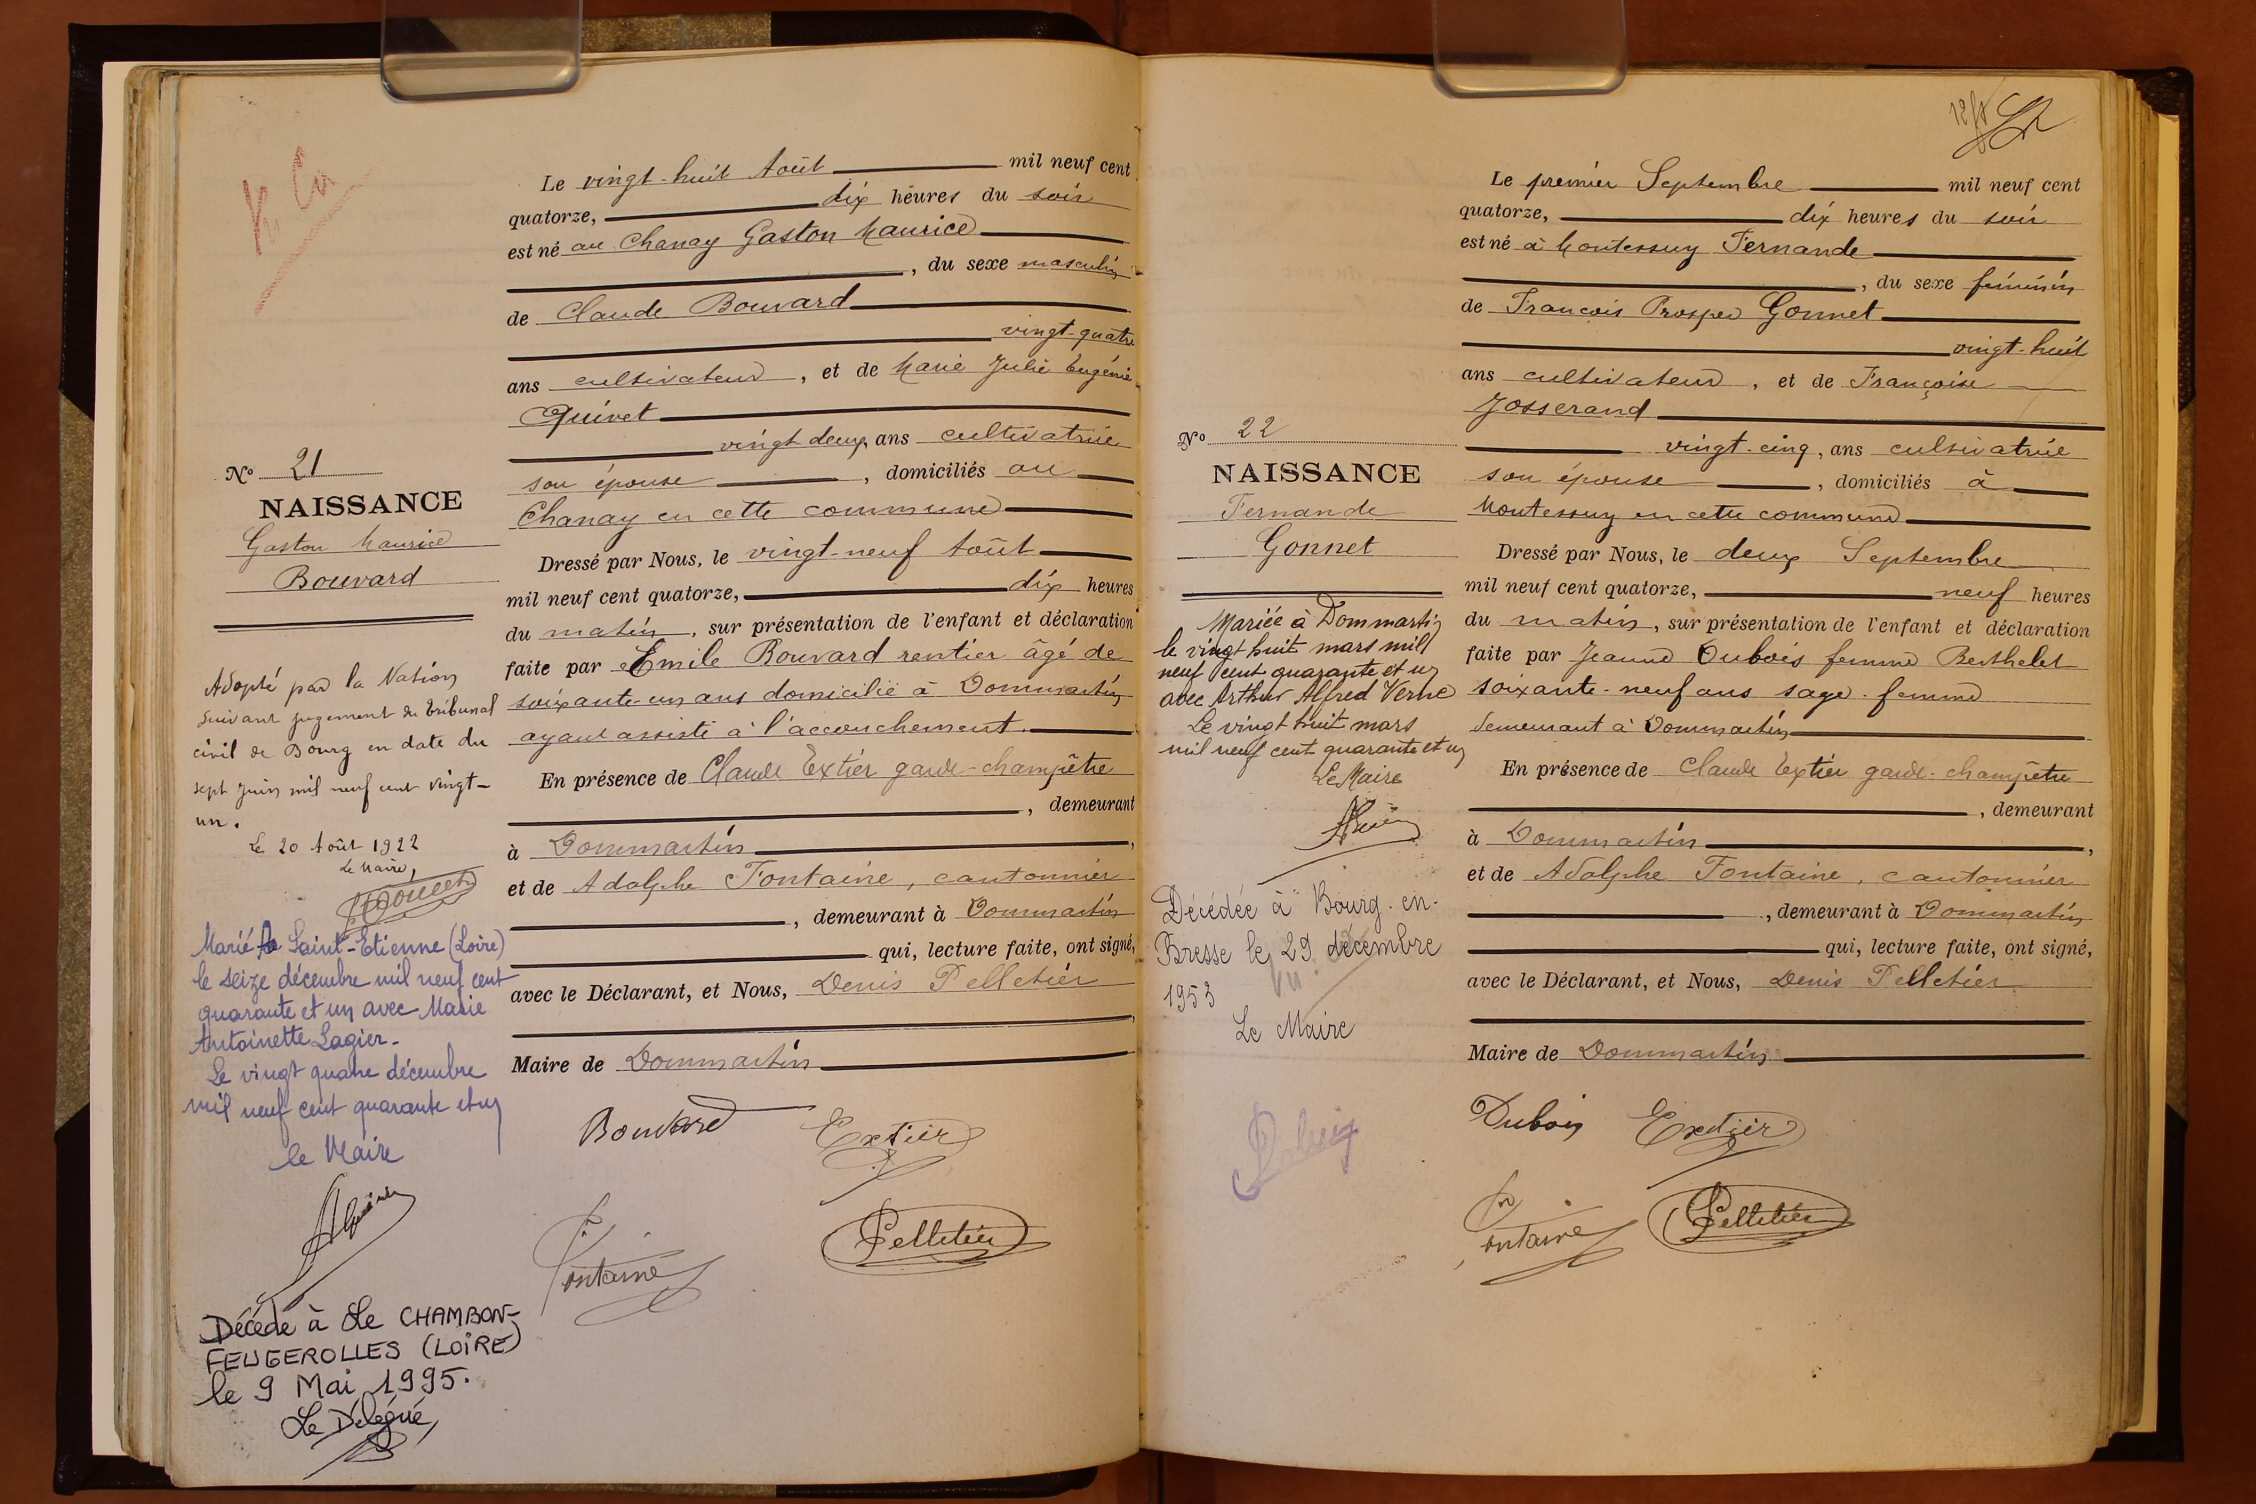 Le vingt-huit Août mil neuf cent
quatorze, dix heures du soir
est né au Chanay Gaston Maurice
, du sexe masculin
de Claude Bouvard
vingt-quatre
ans cultivateur, et de Marie Julie Eugénie
Quivet
vingt deux, ans cultivatrice
son épouse, domiciliés au
Chanay en cette commune
Dressé par Nous, le vingt-neuf Août
mil neuf cent quatorze, dix heures
du matin, sur présentation de l'enfant et déclaration
faite par Emile Bouvard rentier âgé de
soixante-un ans domicilié à Dommartin
ayant assisté à l'accouchement.
En présence de Claude Extier garde-champêtre
, demeurant
à Dommartin,
et de Adolphe Fontaine, cantonnier
, demeurant à Dommartin
qui, lecture faite, ont signé,
avec le Déclarant, et Nous, Denis Pelletier
Maire de Dommartin
Bouvard Extier
Fontaine Pelletier
No 21
NAISSANCE
Gaston Maurice
Bouvard
Adopté par la Nation
suivant jugement du tribunal
civil de Bourg en date du
sept juin mil neuf cent vingt-
un.
Le 20 Août 1922
Le Maire,
Marié à Saint-Etienne (Loire)
le seize décembre mil neuf cent
quarante et un avec Marie
Antoinette Lagier-
Le vingt quatre décembre
mil neuf cent quarante et un
le Maire
Décédé à Le CHAMBON-
FEUGEROLLES (LOIRE)
le 9 Mai 1995.
Le Délégué,
Le premier Septembre mil neuf cent
quatorze, dix heures du soir
est né à Montessuy Fernande
, du sexe féminin
de François Prosper Gonnet
vingt-huit
ans cultivateur, et de Françoise
Josserand
vingt-cinq, ans cultivatrice
son épouse, domiciliés à
Montessuy en cette commune
Dressé par Nous, le deux Septembre
mil neuf cent quatorze, neuf heures
du matin, sur présentation de l'enfant et déclaration
faite par Jeanne Dubois femme Berthelet
soixante-neuf ans sage-femme
demeurant à Dommartin
En présence de Claude Extier garde-champêtre
, demeurant
à Dommartin,
et de Adolphe Fontaine, cantonnier
, demeurant à Dommartin
qui, lecture faite, ont signé,
avec le Déclarant, et Nous, Denis Pelletier
Maire de Dommartin
Dubois Extier
Fontaine Pelletier
No 22
NAISSANCE
Fernande
Gonnet
Mariée à Dommartin
le vingt huit mars mil
neuf cent quarante et un
avec Arthur Alfred Verne
Le vingt huit mars
mil neuf cent quarante et un
Le Maire
Décédée à Bourg-en-
Bresse le 29 décembre
1953
Le Maire